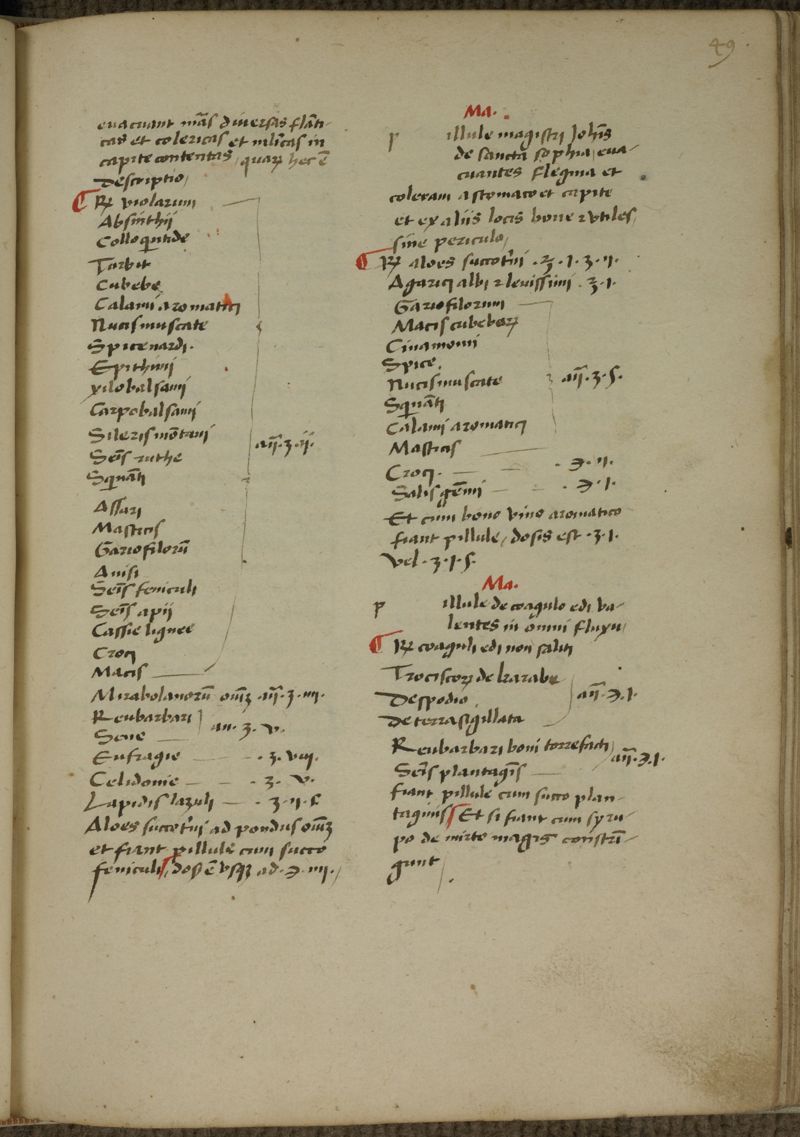 49
euacuant mãs diuersas flãti-
cas et colericas et mlĩcas in
capite contentas, quaꝝ hec ẽ
Descriptio,
℞ violarum
Absinthij
Colloquĩtide
Turbit
Cubebe
Calami aromatici
Nucis muscate
Spice nardi.
Epithimi
xilobalsami
Carpobalsami
Sileris mõtani
Sem̃s ruthe
Squinãti
añ.ʒ.ij.
Assari
Masticis
Gariofilorũ
Anisi
Sem̃s feniculi
Sem̃s apij
Cassie lignee
Croci
Macis
Mirabolanorũ om̃ añ.ʒ.iij.
Reubarbari
Sene
an.ʒ.v.
Eufragie .ʒ.viij.
Celidonie .ʒ.v.
Lapidis lazuli .ʒ.ij.ſ
Aloes succotr̃ni ad pondus om̃
et fiant pillule cum succo
feniculi, dos̃ ẽ vsqʒ ad.℈.iiij.
Ma.
p illule magistri Joh̃is
de sancta sophia, eua-
cuantes flegma et
coleram a stomaco et capite
et ex aliis locis bone ⁊ vtiles
sine periculo,
℞ aloes succotr̃ni .℥.1.ʒ.ij.
Agarici albi ⁊ leuissimi .ʒ.1.
Gariofilorum
Macis cubebaꝝ
Cinamomi
Spice.
Nucis muscate
añ.ʒ.ſ.
Squinãti
Calami aromatici
Masticis
Croci. .℈.ij.
Salis gem̃i .℈.1.
Et cum bono vino aromatico
fiant pillule, dosis est .ʒ.1.
Vel.ʒ.1.ſ.
Ma.
p illule de coagulo edi va-
lentes in omni fluxu
℞ coaguli edi non saliti
Trociscoꝝ de karabe
De spodio.
De terra sigillata
añ.℈.1.
Reubarbari boni torrefacti
Sem̃s plantagĩs
añ.℈.1.
fiant pillule cum succo plan-
taginis Et si fiant cum syru-
po de mirto magis constrĩ-
gunt